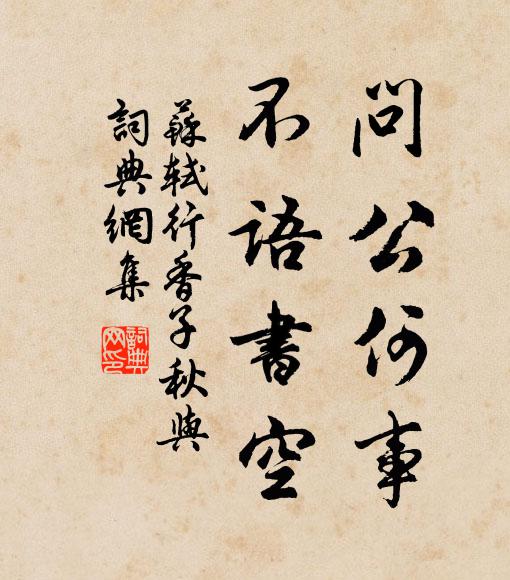 問公何事
不語書空
蘇軾行香子秋與
詞典網集
詞典網印